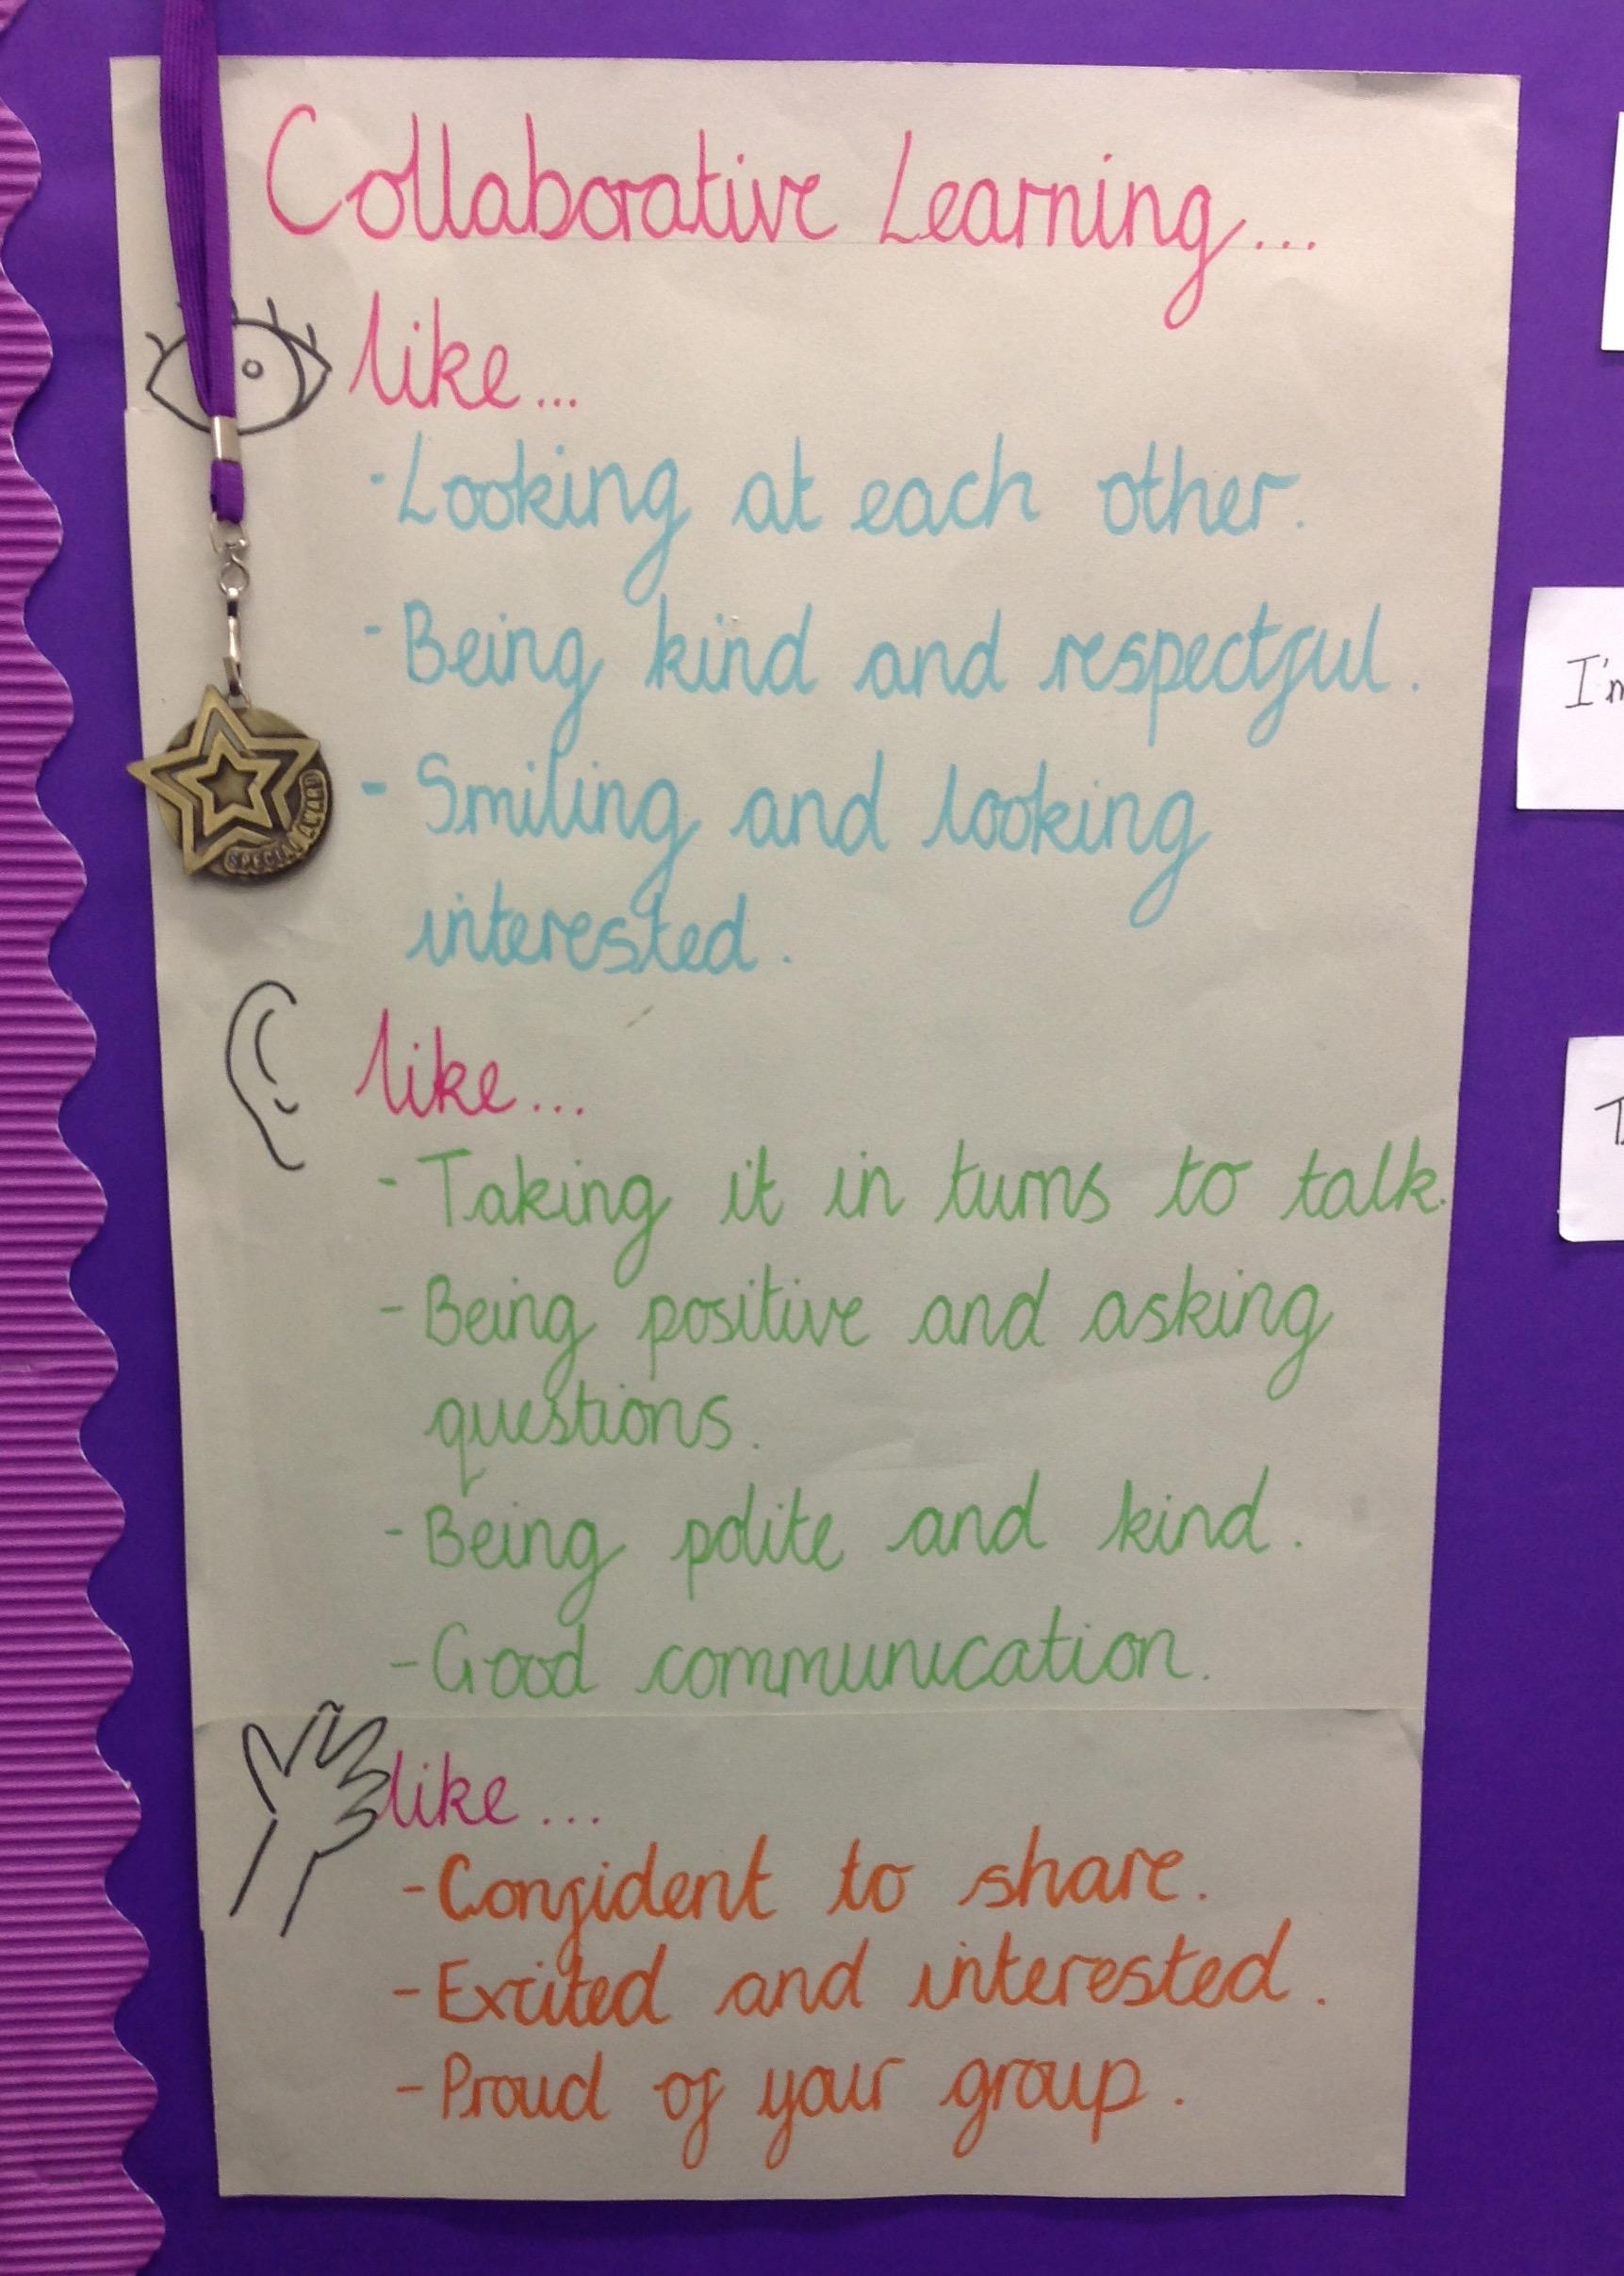 Collaborative Learning...
like...
- Looking at each other.
- Being kind and respectful.
- Smiling and looking
interested.
SPECIAL AWARD
like...
- Taking it in turns to talk.
- Being positive and asking
questions.
- Being polite and kind.
- Good communication.
like...
- Confident to share.
- Excited and interested.
- Proud of your group.